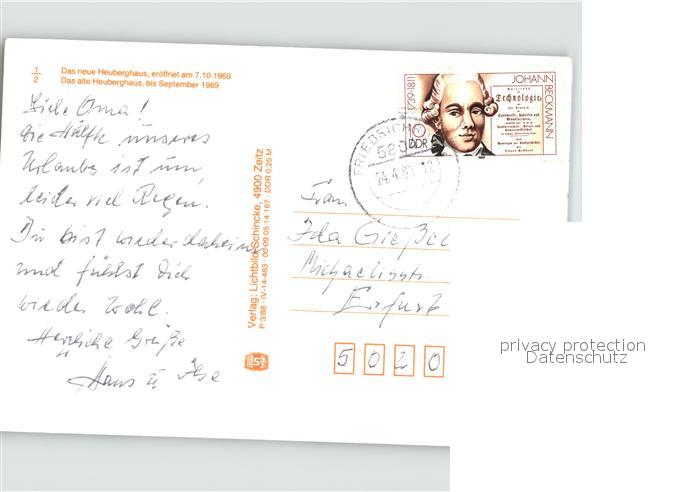 1 Das neue Heuberghaus, eröffnet am 7.10 1969
2 Das alte Heuberghaus, bis September 1969
Liebe Oma!
Die Hälfte unseres
Urlaubs ist um,
leider viel Regen.
Du bist wieder daheim
und fühlst Dich
wieder wohl.
Herzliche Grüße
Hans u. Ilse
Verlag: Lichtbild Schincke, 4900 Zeitz
P 3/88 · IV-14-483 · 00 09 05 14 167 · DDR 0,25 M
JOHANN BECKMANN
1739-1811
DDR
Technologie
FRIEDRICH
580
24.4.89 12
Frau
Ida
Michaelisstr.
Erfurt
5020
privacy protection
Datenschutz